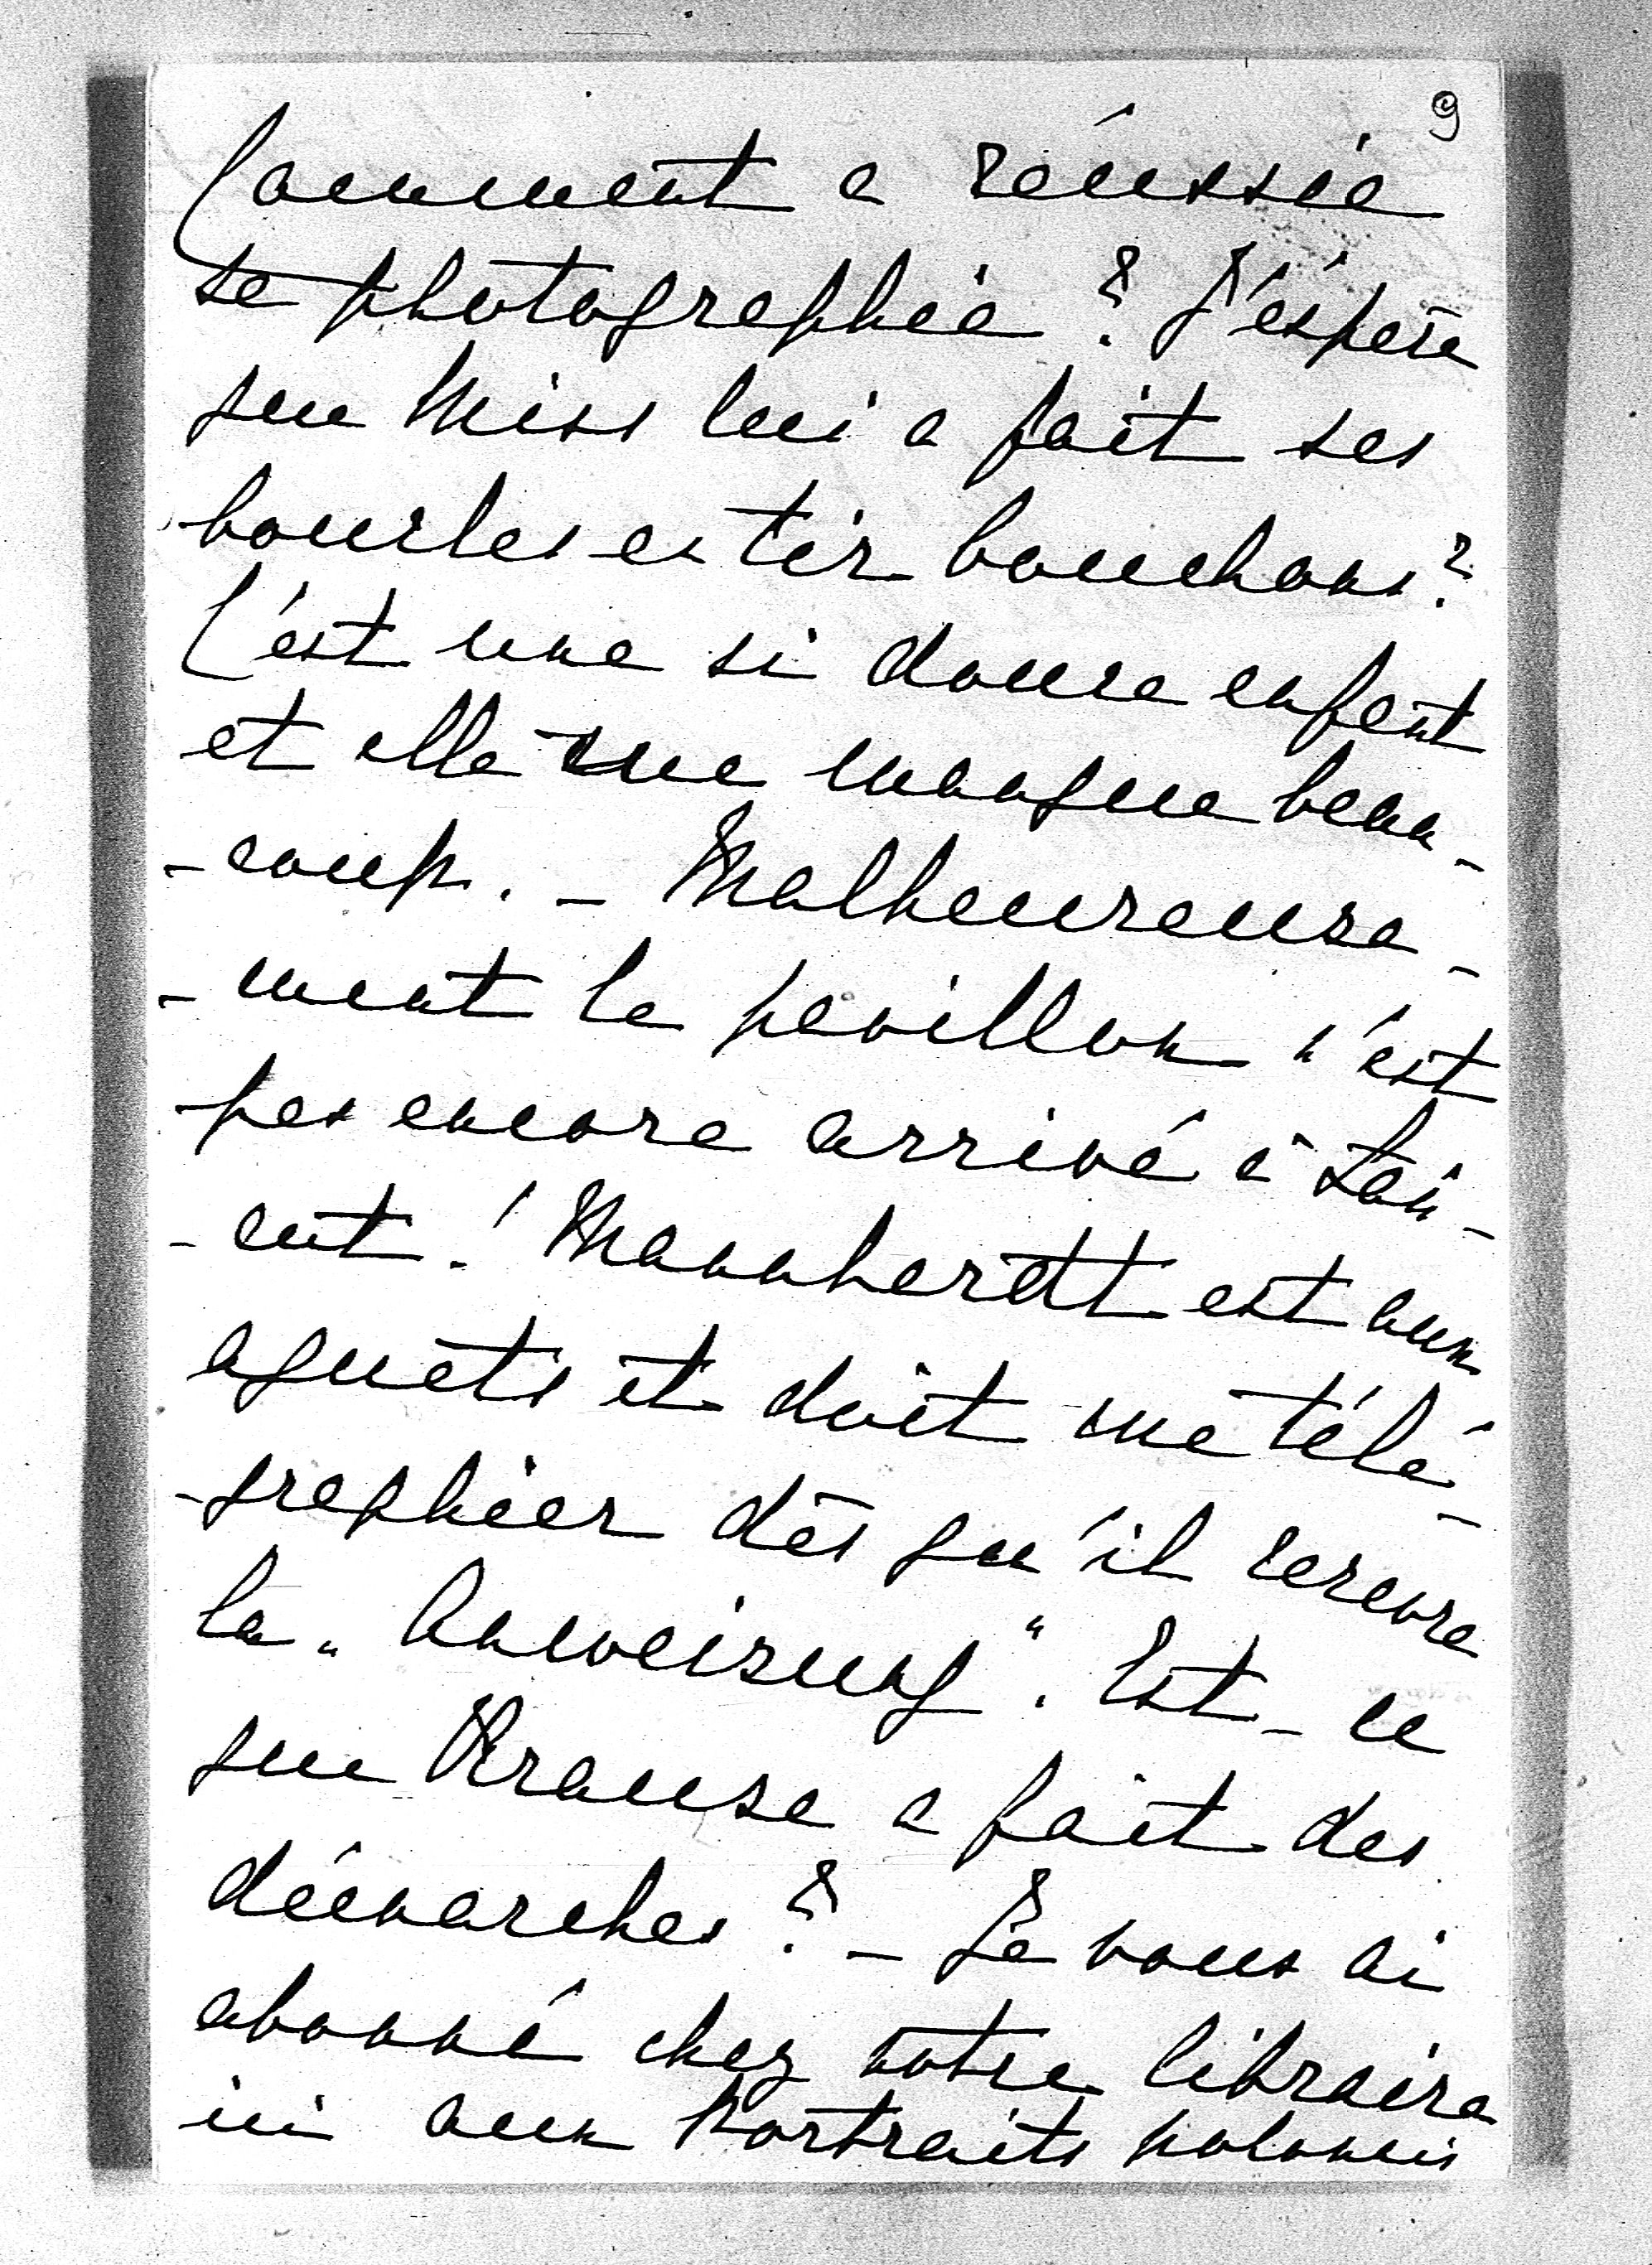 9
Comment a réussie
sa photographie ? J'éspère
que Miss lui a fait ses
bourles en tir bouchons ?
C'est une si douce enfant
et elle me manque beau-
-coup. - Malheureuse-
-ment le pavillon n'est
pas encore arrivé à Lan-
-cut ! Mannhertt est aux
aguêts et doit me télé-
-graphier dès qu'il recevra
la „Anweisung". Est-ce
que Krause a fait des
démarches ? - Je vous ai
abonné chez notre libraire
ici aux Portraits polonais